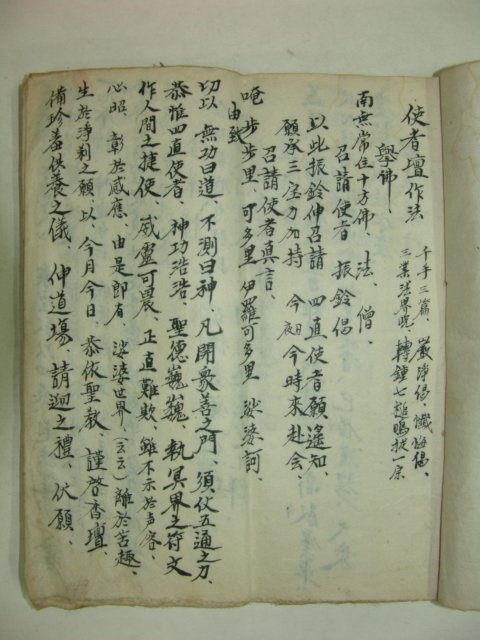 使者壇作法
千手三篇、嚴淨偈、懺悔偈、
三業法界唵、轉鍾七鎚鳴鈸一宗
擧佛
南無常住十方佛、法、僧、
召請使者 振鈴偈
以此振鈴伸召請 四直使者願遙知、
願承三宝力加持 今夜日今時來赴会、
召請使者真言、
唵步步里、可多里 伊羅可多里 娑婆訶、
由致
切以 無功曰道、不測曰神、凡開衆善之門、須仗五通之力、
恭惟四直使者、神功浩浩、聖德巍巍、執冥界之符文
作人間之捷使 威靈可畏、正直難欺、雖不示於声容、
心昭 彰於感應 由是即有、娑婆世界(云云)離於苦趣、
生於淨刹之願、以、今月今日、恭依聖教、謹啓香壇、
備珍羞供養之儀 伸道場、請迎之禮、伏願、